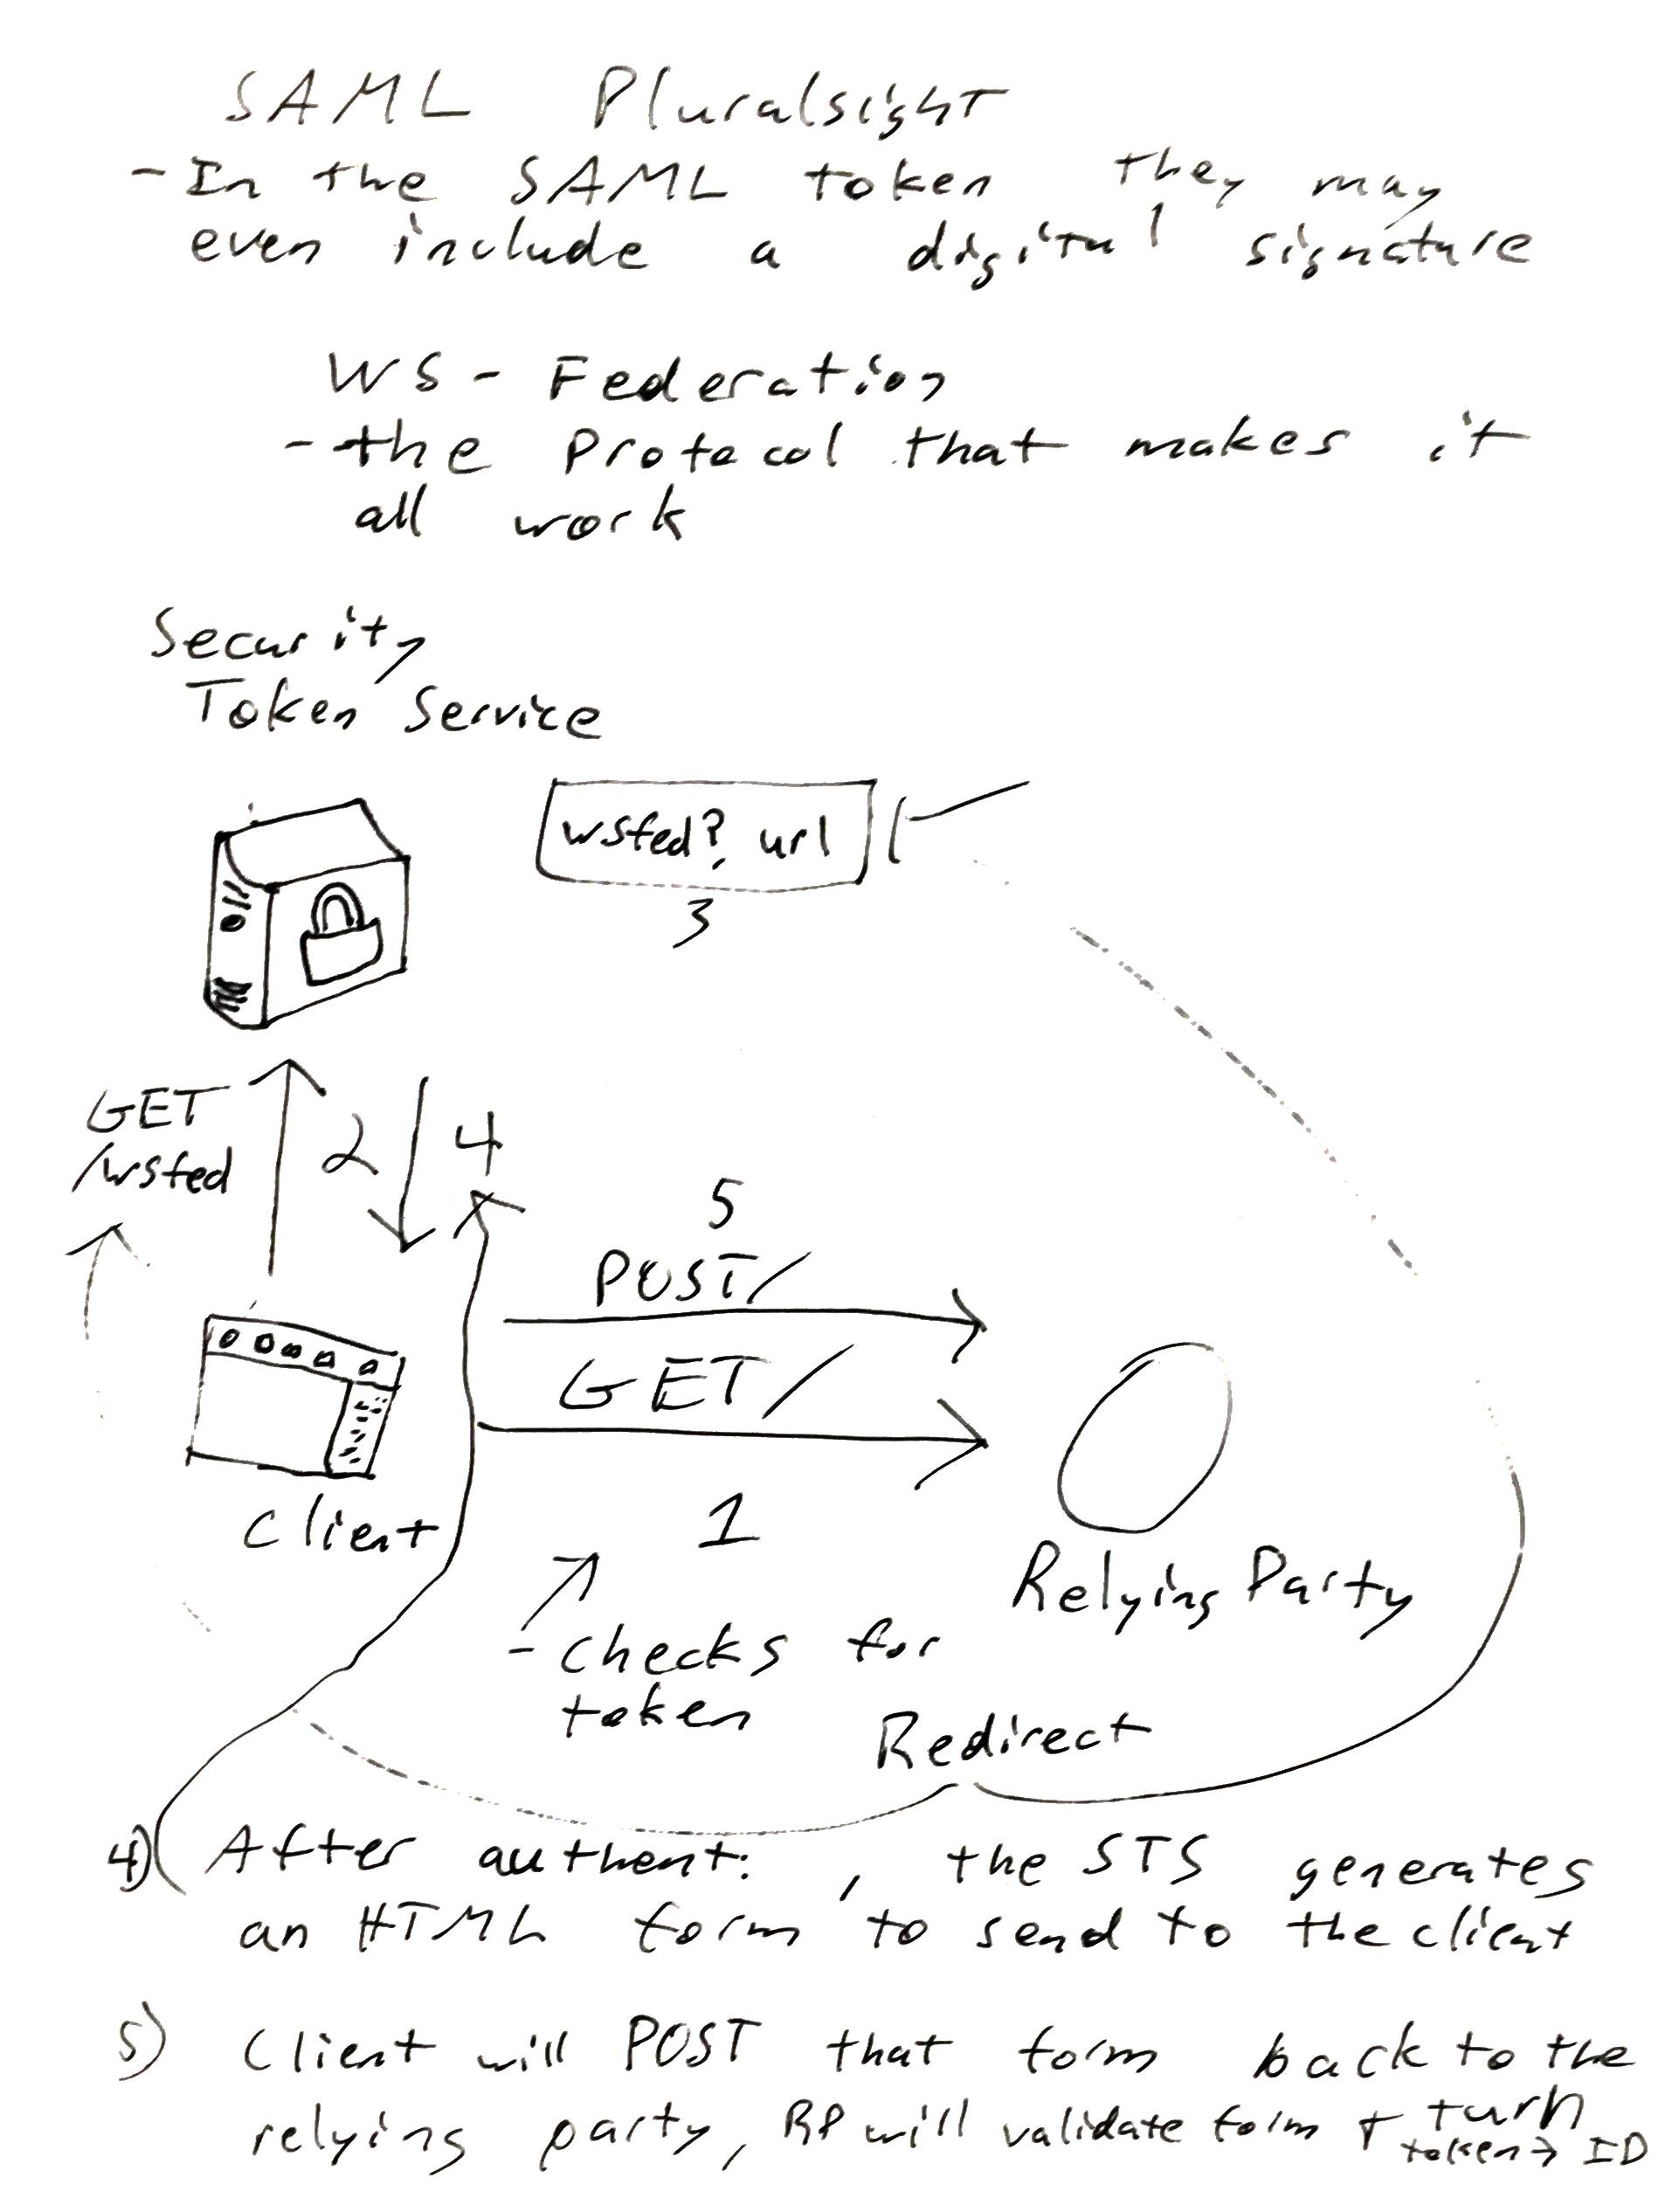 SAML Pluralsight
- In the SAML token they may
even include a digital signature
WS - Federation
- the Protocol that makes it
all work
Security
Token Service
wsfed?, url
3
GET
/wsfed
2
4
5
POST/
GET/
1
Client
Relying Party
- checks for
token
Redirect
4) After authenti: , the STS generates
an HTML form to send to the client
5) Client will POST that form back to the
relying party, RP will validate form + turn
token → ID